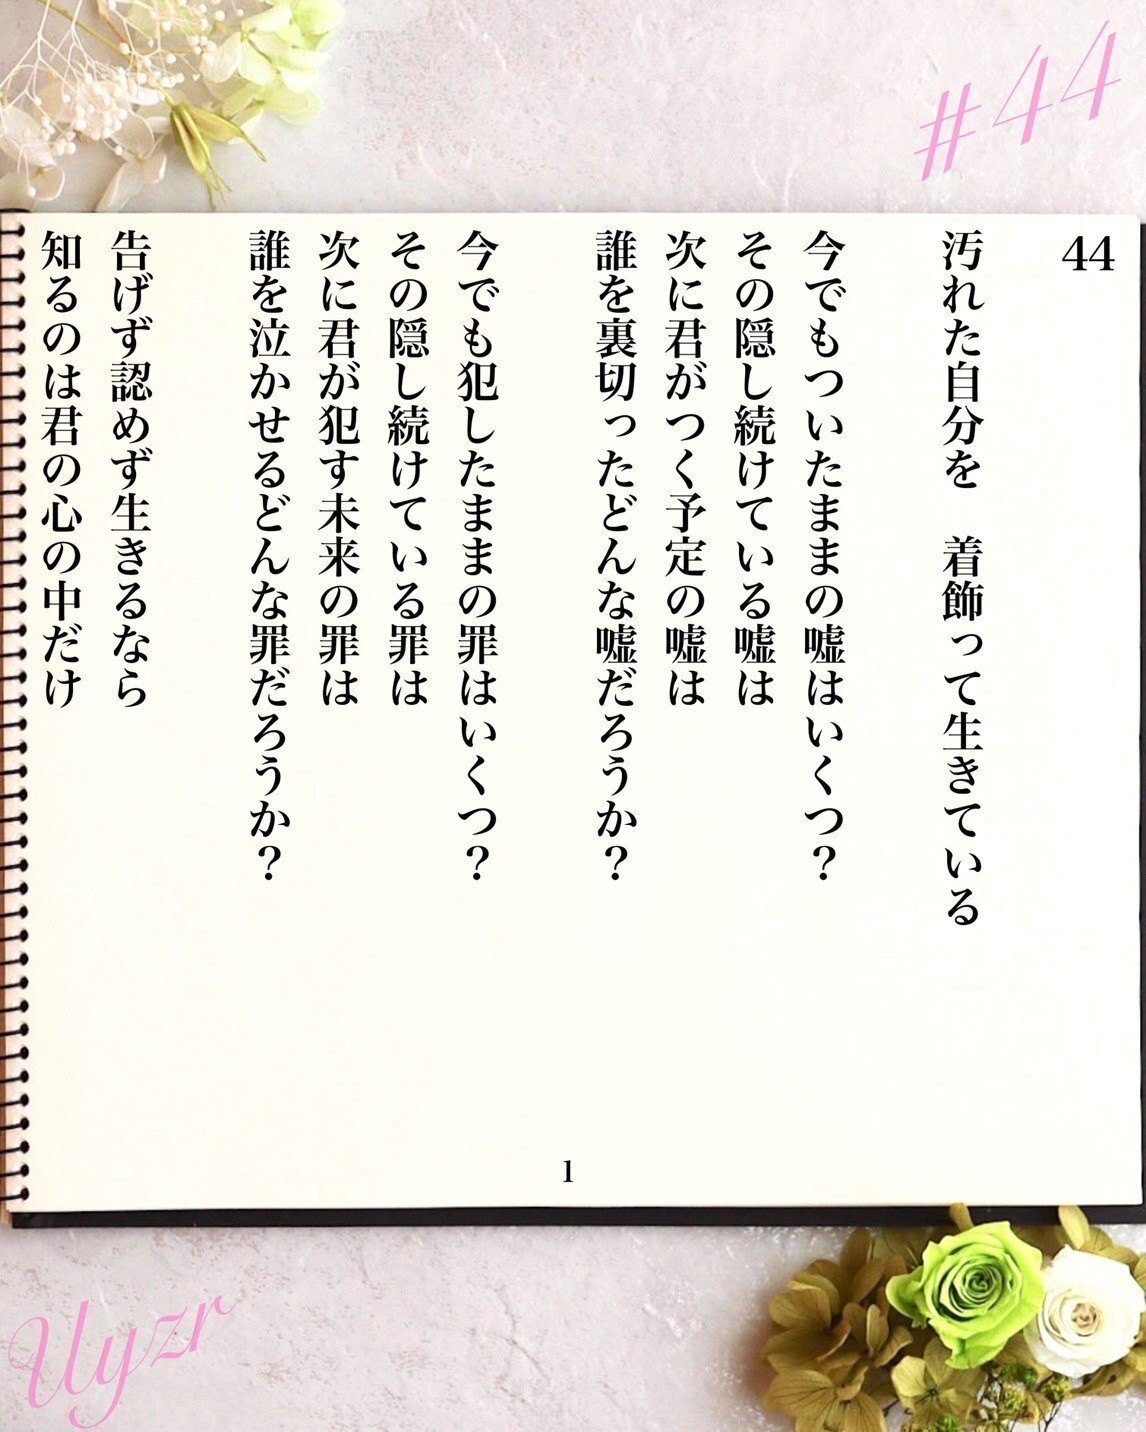 #44
44
汚れた自分を　着飾って生きている
今でもついたままの嘘はいくつ？
その隠し続けている嘘は
次に君がつく予定の嘘は
誰を裏切ったどんな嘘だろうか？
今でも犯したままの罪はいくつ？
その隠し続けている罪は
次に君が犯す未来の罪は
誰を泣かせるどんな罪だろうか？
告げず認めず生きるなら
知るのは君の心の中だけ
1
Uyzr